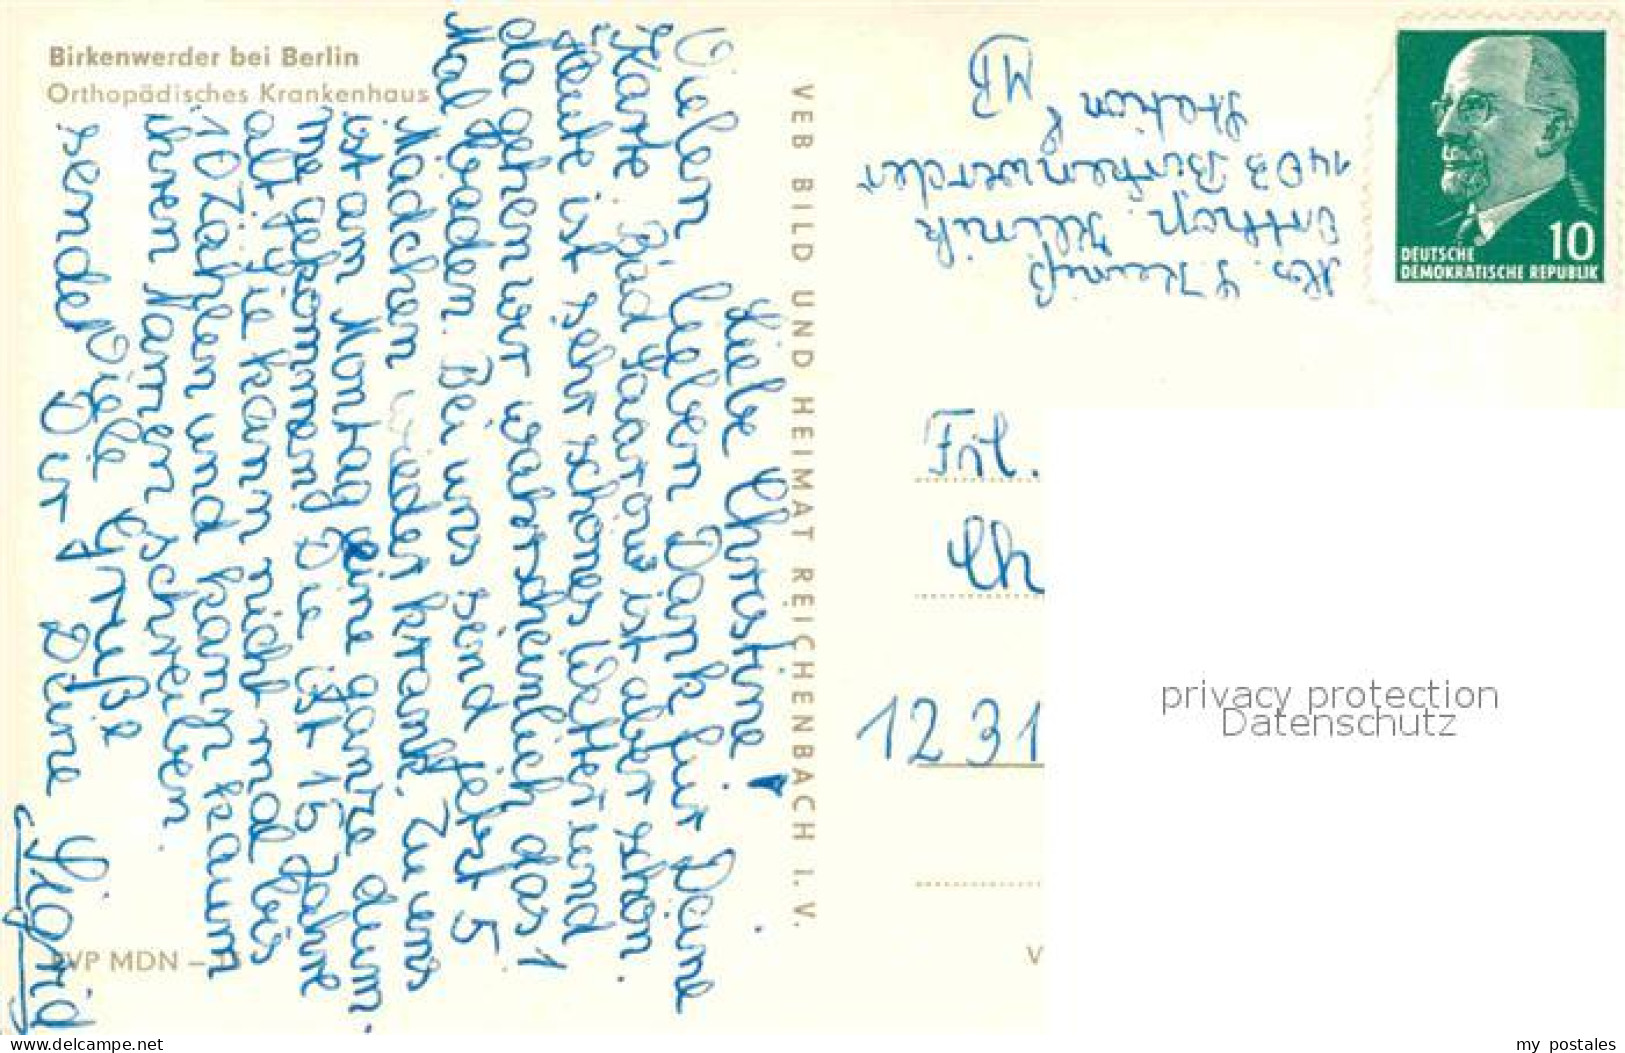 Birkenwerder bei Berlin
Orthopädisches Krankenhaus
Liebe Christine!
Vielen lieben Dank für Deine
Karte. Bad Saarow ist aber schon.
Heute ist sehr schönes Wetter und
da gehen wir wahrscheinlich das 1
Mal baden. Bei uns sind jetzt 5
Mädchen wieder krank. Zu uns
ist am Montag eine ganze dum-
me gekommen. Die ist 15 Jahre
alt, sie kann nicht mal bis
10 zählen und kann kaum
ihren Namen schreiben.
Viele Grüße
sendet Dir Deine
Sigrid
EVP MDN –
VEB BILD UND HEIMAT REICHENBACH I. V.
Abs. S.
Orthop. Klinik
1403 Birkenwerder
Station 8
MB
10
DEUTSCHE
DEMOKRATISCHE REPUBLIK
Frl.
Ch
1231
V
privacy protection
Datenschutz
www.ansichtskarten-center.de
my_postales